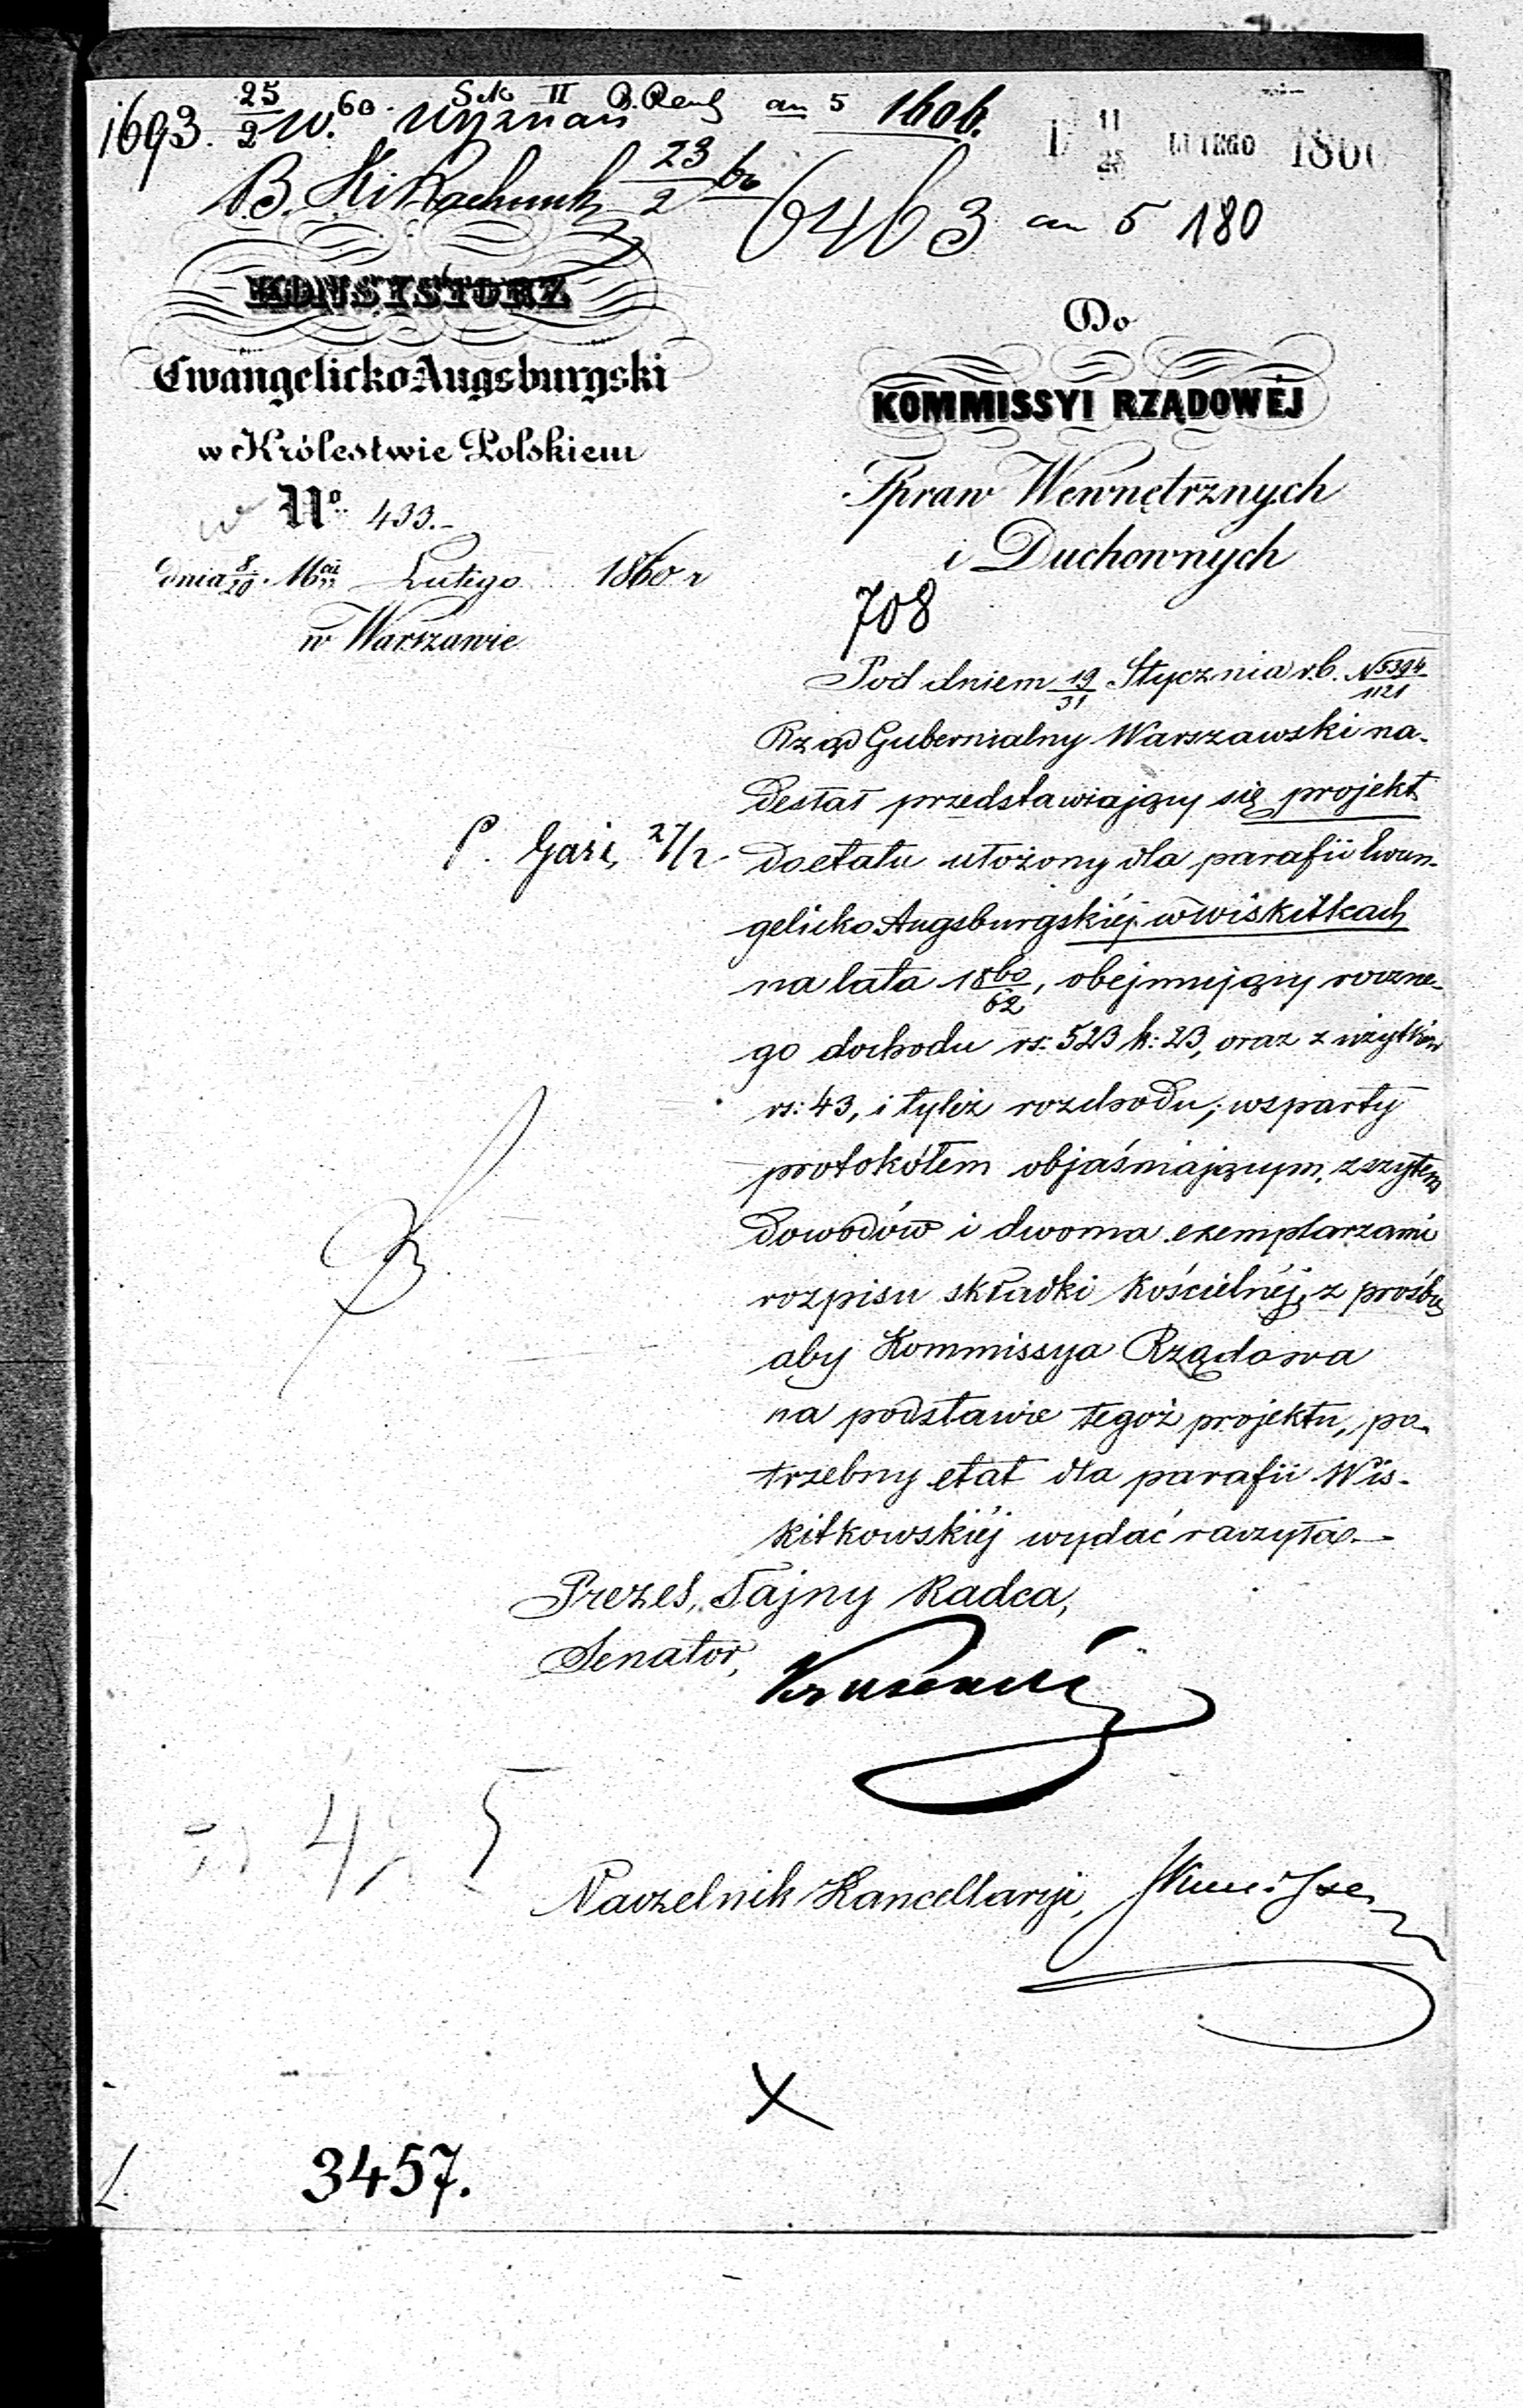 1693. 25/2 W. 60. Wyznań Sek II an 5 1606.
11/23 LUTEGO 1860
B. 23/2 60
6463 an 5 180
KONSYSTORZ
Ewangelicko-Augsburgski
w Królestwie Polskiem
No 433.-
dnia 8/20 Lutego 1860 r
w Warszawie
Do
KOMMISSYI RZĄDOWÉJ
Spraw Wewnętrznych
i Duchownych
708
Pod dniem 19/31 Stycznia r.b. N 5394/1121
Rząd Gubernialny Warszawski na-
desłał przedstawiający się projekt
do etatu ułożony dla parafii Ewan-
gelicko Augsburgskiéj w Wiskitkach
na lata 1860/62, obejmujący roczne-
go dochodu rs: 523 k: 23, oraz z użytków
rs: 43, i tyleż rozchodu; wsparty
protokółem objaśniającym, zszytem
dowodów i dwoma exemplarzami
rozpisu składki kościelnéj, z prośbą
aby Kommissya Rządowa
na podstawie tegoż projektu, po-
trzebny etat dla parafii Wis-
kitkowskiéj wydać raczyła.-
P. 27/2
Prezes, Tajny Radca,
Senator,
Naczelnik Kancellaryi,
X
3457.